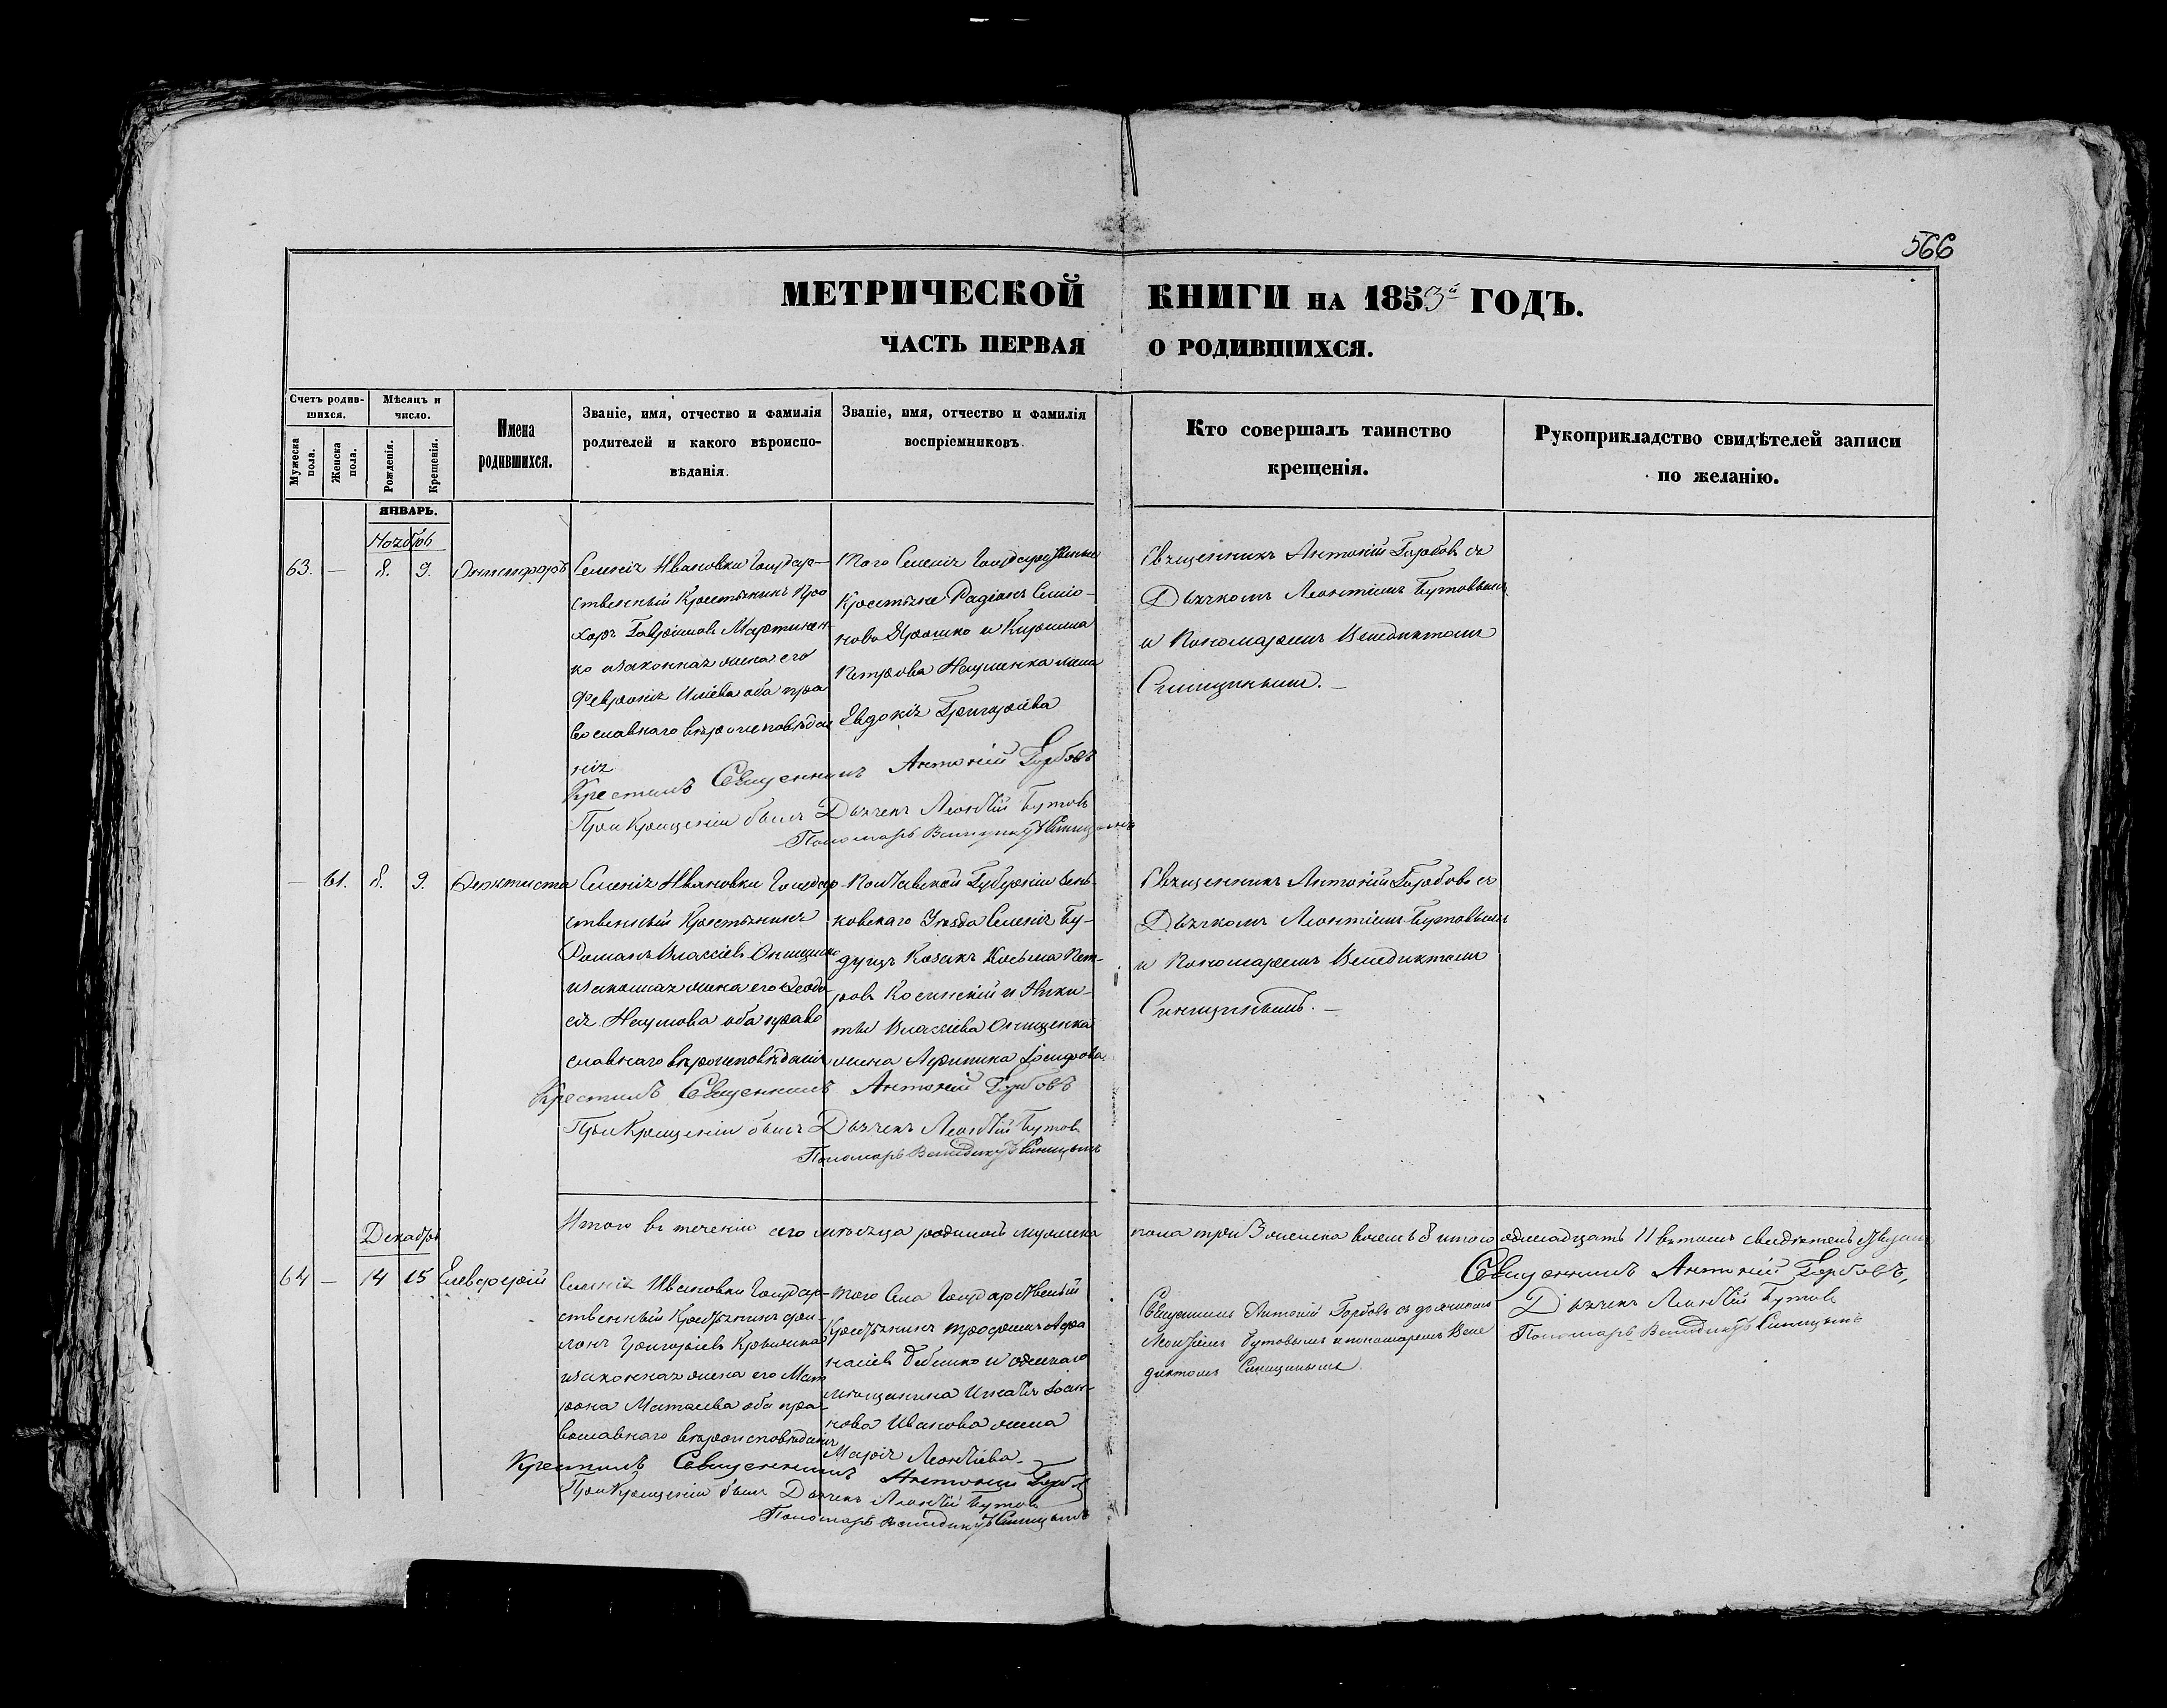 566
МЕТРИЧЕСКОЙ КНИГИ НА 1853й ГОДЪ.
ЧАСТЬ ПЕРВАЯ О РОДИВШИХСЯ.
Счетъ родив-
шихся.
Мужеска
пола.
Женска
пола.
Мѣсяцъ и
число.
Рожденія.
Крещенія.
Имена
родившихся.
Званіе, имя, отчество и фамилія
родителей и какого вѣроиспо-
вѣданія.
Званіе, имя, отчество и фамилія
воспріемниковъ.
Кто совершалъ таинство
крещенія.
Рукоприкладство свидѣтелей записи
по желанію.
ЯНВАРЬ.
Ноябрь
63. — 8. 9. Онисифоръ
Селенія Ивановки Государ-
ственный Крестьянинъ Про
хоръ Гавріиловъ Мартинен-
ко и законная жена его
Февронія Иліева оба пра
вославнаго вѣроисповѣда
нія
того Селенія Государственные
Крестьяне Радіонъ Симіо-
новъ Ярошко и Кирилла
Петрова Науменка жена
Евдокія Григоріева
Священникъ Антоній Горбовъ съ
Дьячкомъ Леонтіемъ Бутовымъ
и Пономаремъ Венедиктомъ
Синицинымъ. —
Крестилъ Священникъ Антоній Горбовъ
При Крещеніи былъ Дьячекъ Леонтій Бутовъ
Пономарь Венидиктъ Синицынъ
— 61. 8. 9. Феоктиста
Селенія Ивановки Государ-
ственный Крестьянинъ
Романъ Власіевъ Онищенко
и законная жена его Феодо-
сія Наумова оба право
славнаго вѣроисповѣданія
Полтавской Губерніи Зень-
ковскаго Уезда Селенія Бу-
дунцъ Козакъ Косьма Пет-
ровъ Косинскій и Ники-
ты Власіева Онищенка
жена Агрипина Іосифова
Священникъ Антоній Горбовъ съ
Дьячкомъ Леонтіемъ Бутовымъ
и Пономаремъ Венедиктомъ
Синицинымъ. —
Крестилъ Священникъ Антоній Горбовъ
При Крещеніи былъ Дьячекъ Леонтій Бутовъ
Пономарь Венидиктъ Синицынъ
Итого въ теченіи сего мѣсяца родилось мужеска пола три 3 женска восемь 8 итого одинадцать 11 въ томъ свидѣтельствуемъ
Священникъ Антоній Горбовъ,
Дьячекъ Леонтій Бутовъ
Пономарь Венидиктъ Синицынъ
Декабрь
64 — 14 15 Елевферій
Селенія Ивановки Государ-
ственный Крестьянинъ
Григоріевъ
и законная жена его Мат
рона Матѳеева оба пра-
вославнаго вѣроисповѣданія
того Села Государственный
Крестьянинъ Трофимъ Афа
насіевъ и
мѣщанина Игнатія Іоан-
нова Иванова жена
Марія Леонтіева.
Священникъ Антоній Горбовъ съ дьячкомъ
Леонтіемъ Бутовымъ и пономаремъ Вене
диктомъ Синицинымъ
Крестилъ Священникъ Антоній Горбовъ
При Крещеніи былъ Дьячекъ Леонтій Бутовъ
Пономарь Венидиктъ Синицынъ